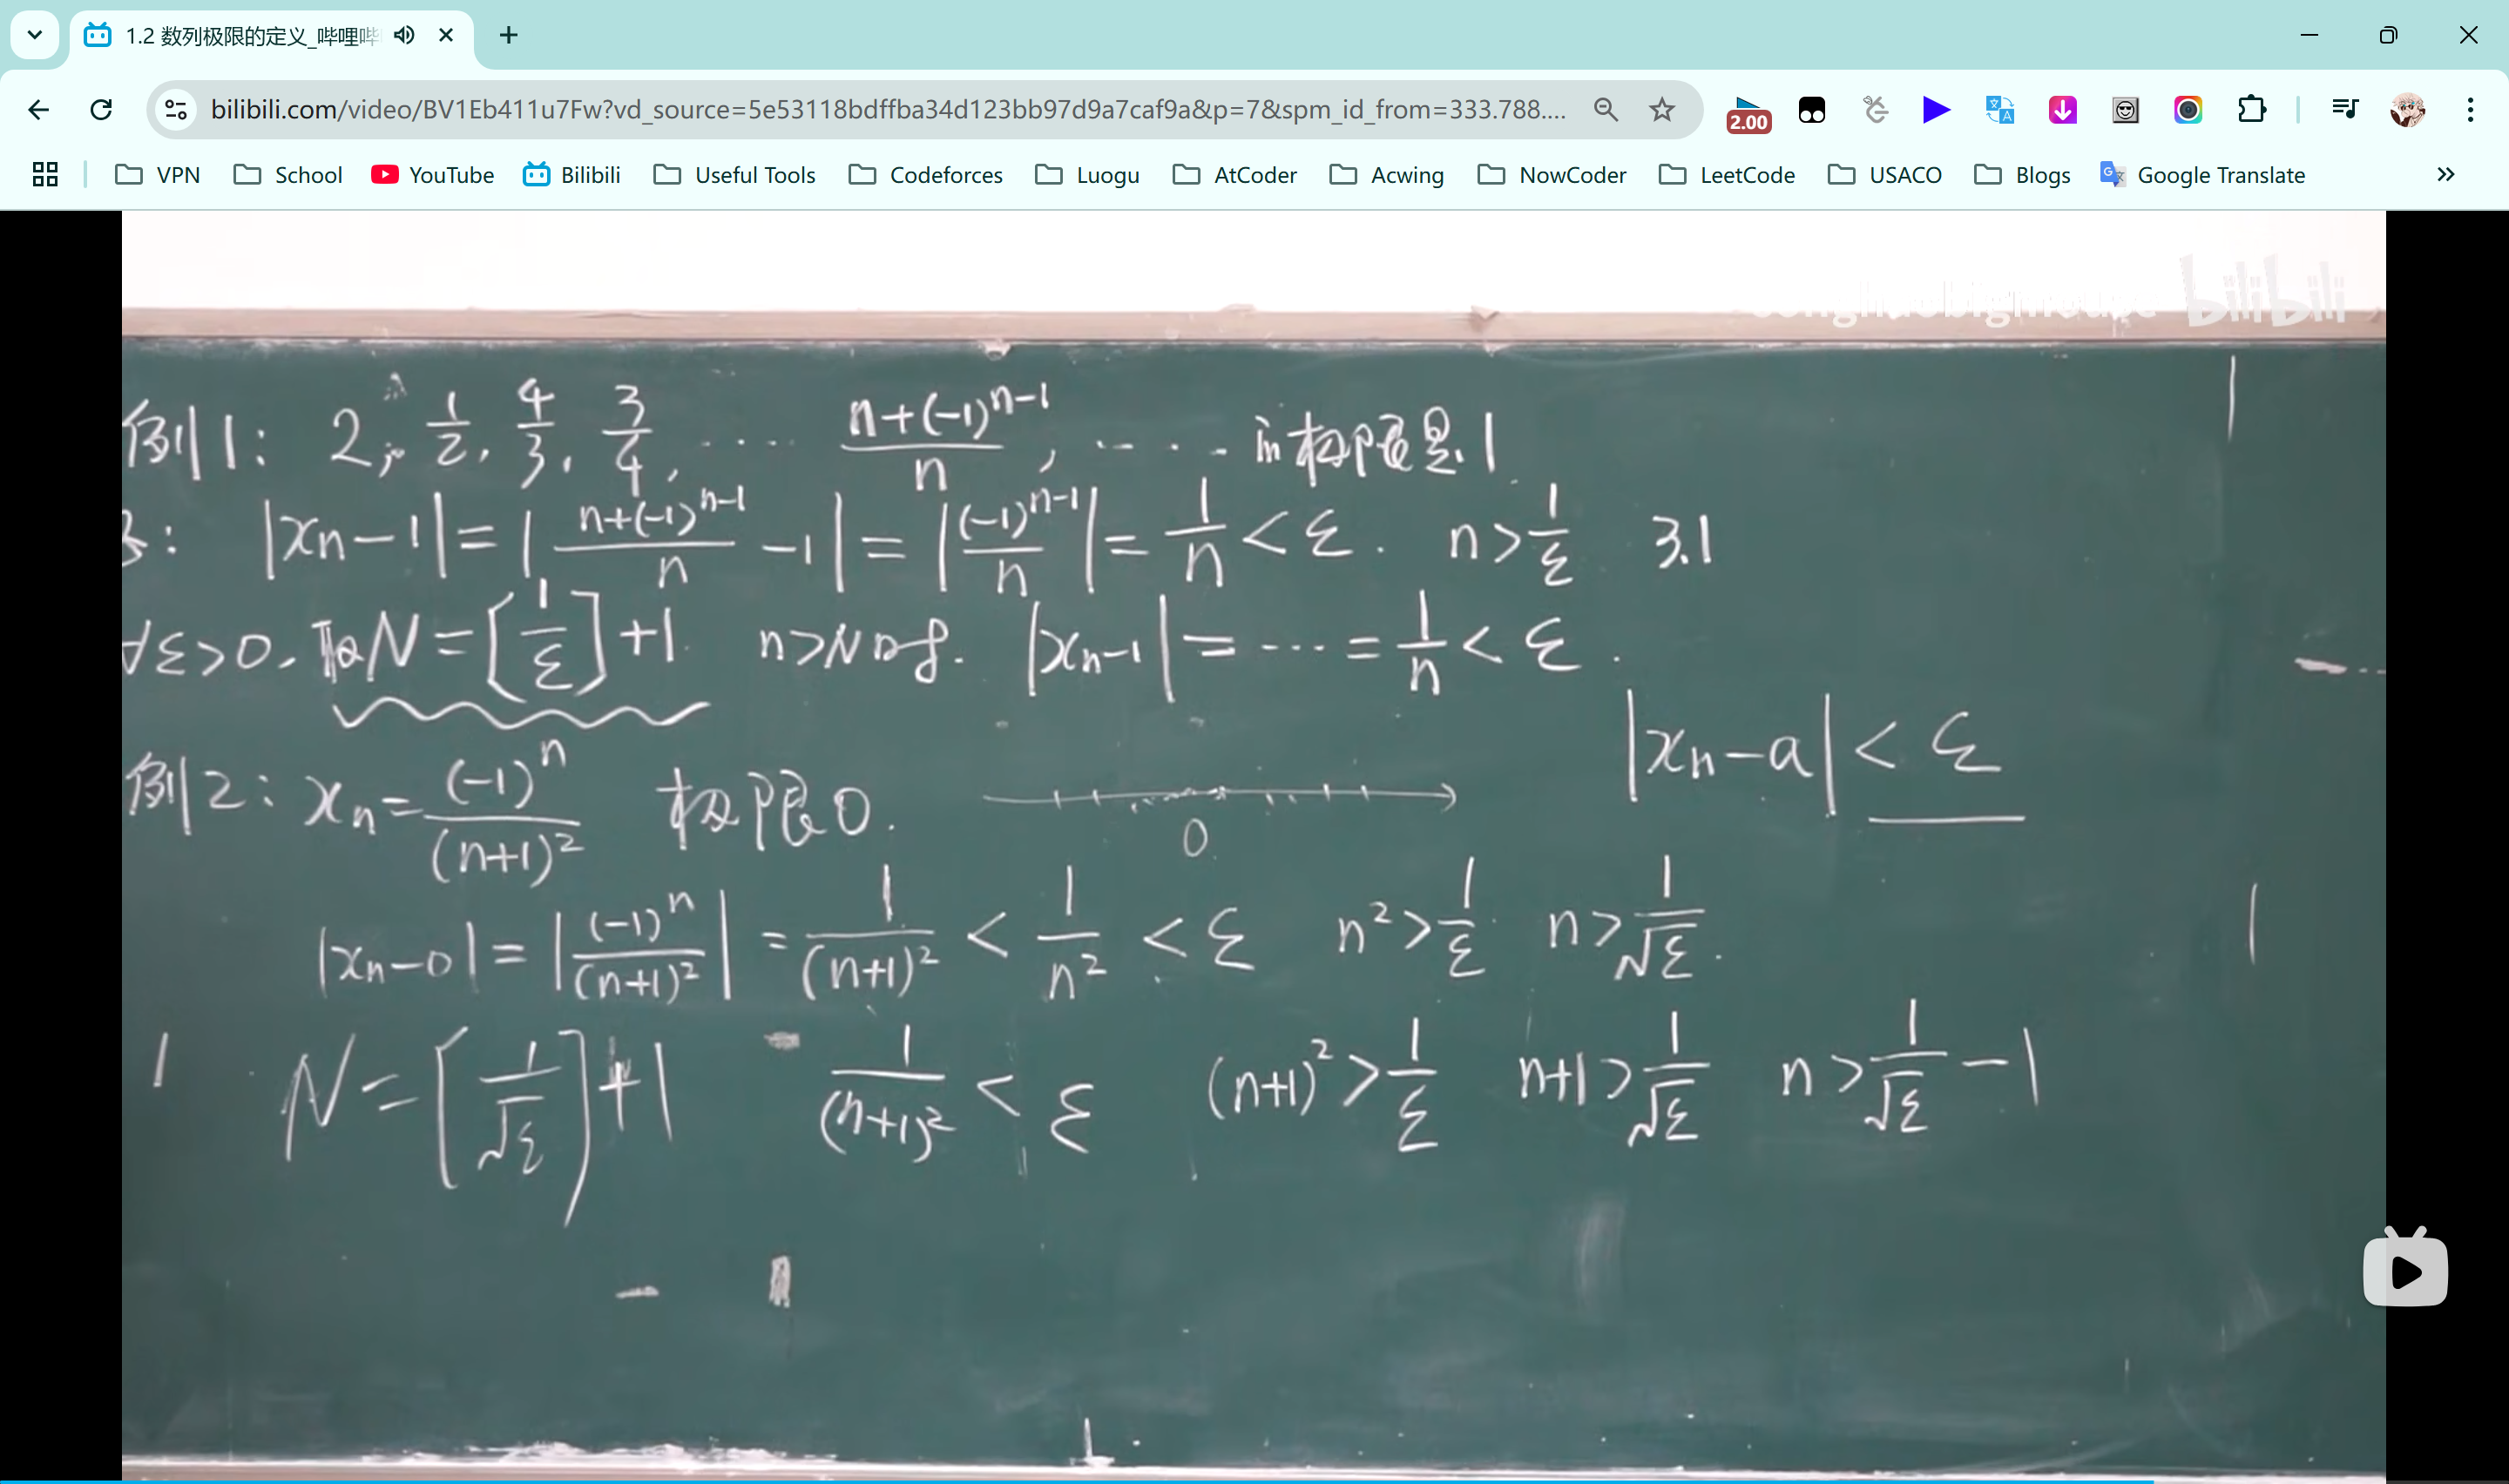 1.2 数列极限的定义_哔哩哔
bilibili.com/video/BV1Eb411u7Fw?vd_source=5e53118bdffba34d123bb97d9a7caf9a&p=7&spm_id_from=333.788....
2.00
VPN School YouTube Bilibili Useful Tools Codeforces Luogu AtCoder Acwing NowCoder LeetCode USACO Blogs Google Translate
bilibili
例1: 2, 1/2, 4/3, 3/4, ···· (n+(-1)^(n-1))/n, ···· 的极限是1
|xn-1| = |(n+(-1)^(n-1))/n - 1| = |(-1)^(n-1)/n| = 1/n < ε. n > 1/ε 3.1
∀ε>0, 取N = [1/ε]+1 n>N时. |xn-1| = ··· = 1/n < ε.
|xn-a| < ε
例2: xn = (-1)^n/(n+1)² 极限0.
0
|xn-0| = |(-1)^n/(n+1)²| = 1/(n+1)² < 1/n² < ε n² > 1/ε n > 1/√ε.
N = [1/√ε]+1 1/(n+1)² < ε (n+1)² > 1/ε n+1 > 1/√ε n > 1/√ε - 1